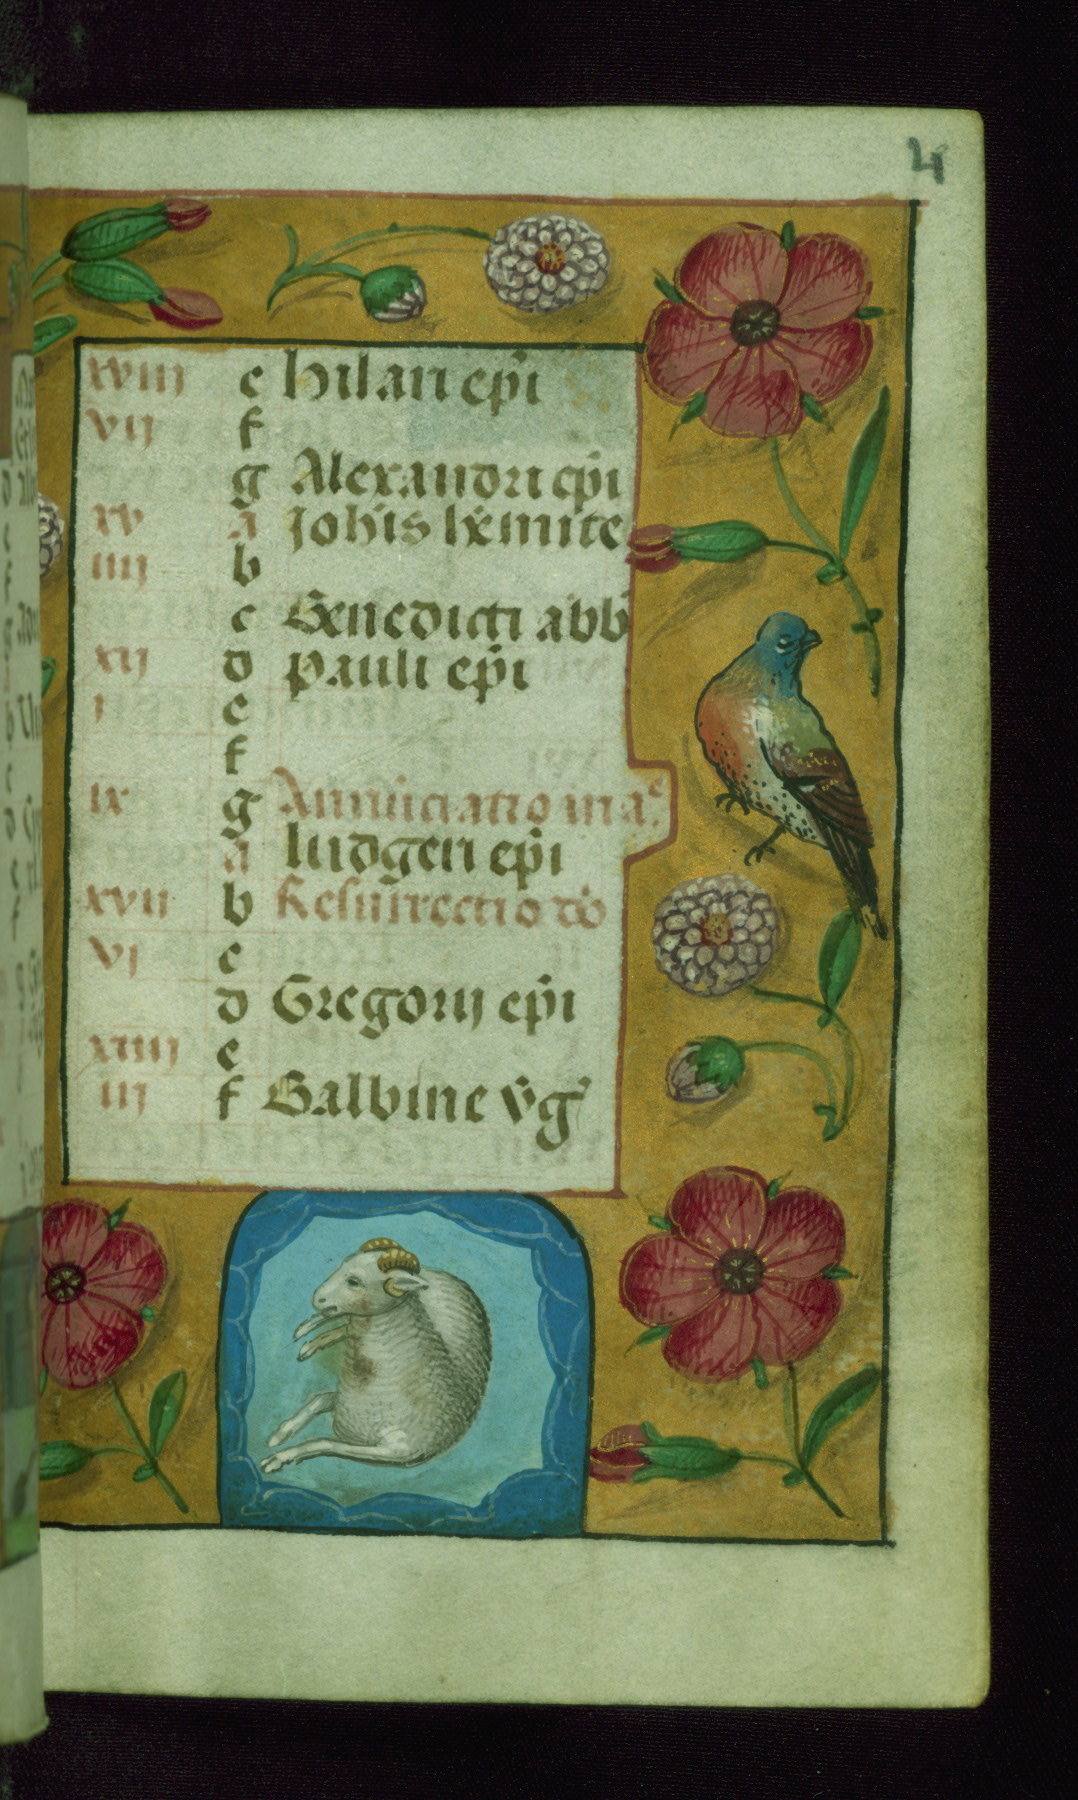 4
xviij e hilarii ep̄i
vij f
g Alexandri ep̄i
xv a Joh̄is h̄emite
iiij b
c Benedicti abb̄
xij d Pauli ep̄i
j e
f
ix g Annūciatio maᶜ
a ludgeri ep̄i
xvij b Resurrectio dō
vj c
d Gregorij ep̄i
xiiij e
iij f Balbine v̄g